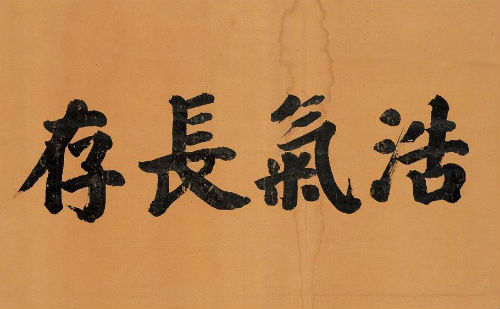 浩氣長存